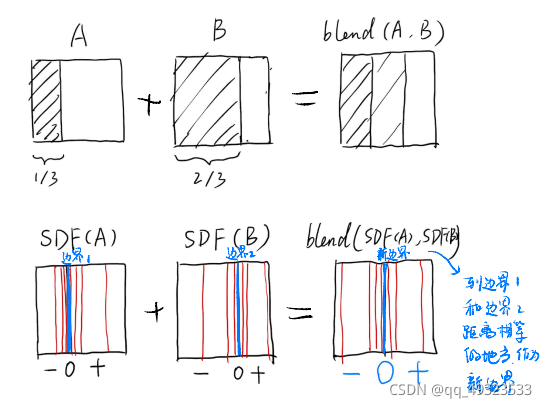 A
B
blend(A.B)
+
=
1/3
2/3
SDF(A)
SDF(B)
blend(SDF(A),SDF(B)
边界1
边界2
新边界
+
=
- 0 +
- 0 +
- 0 +
到边界1
和边界2
距离相等
的地方,作为
新边界
CSDN @qq_49323533